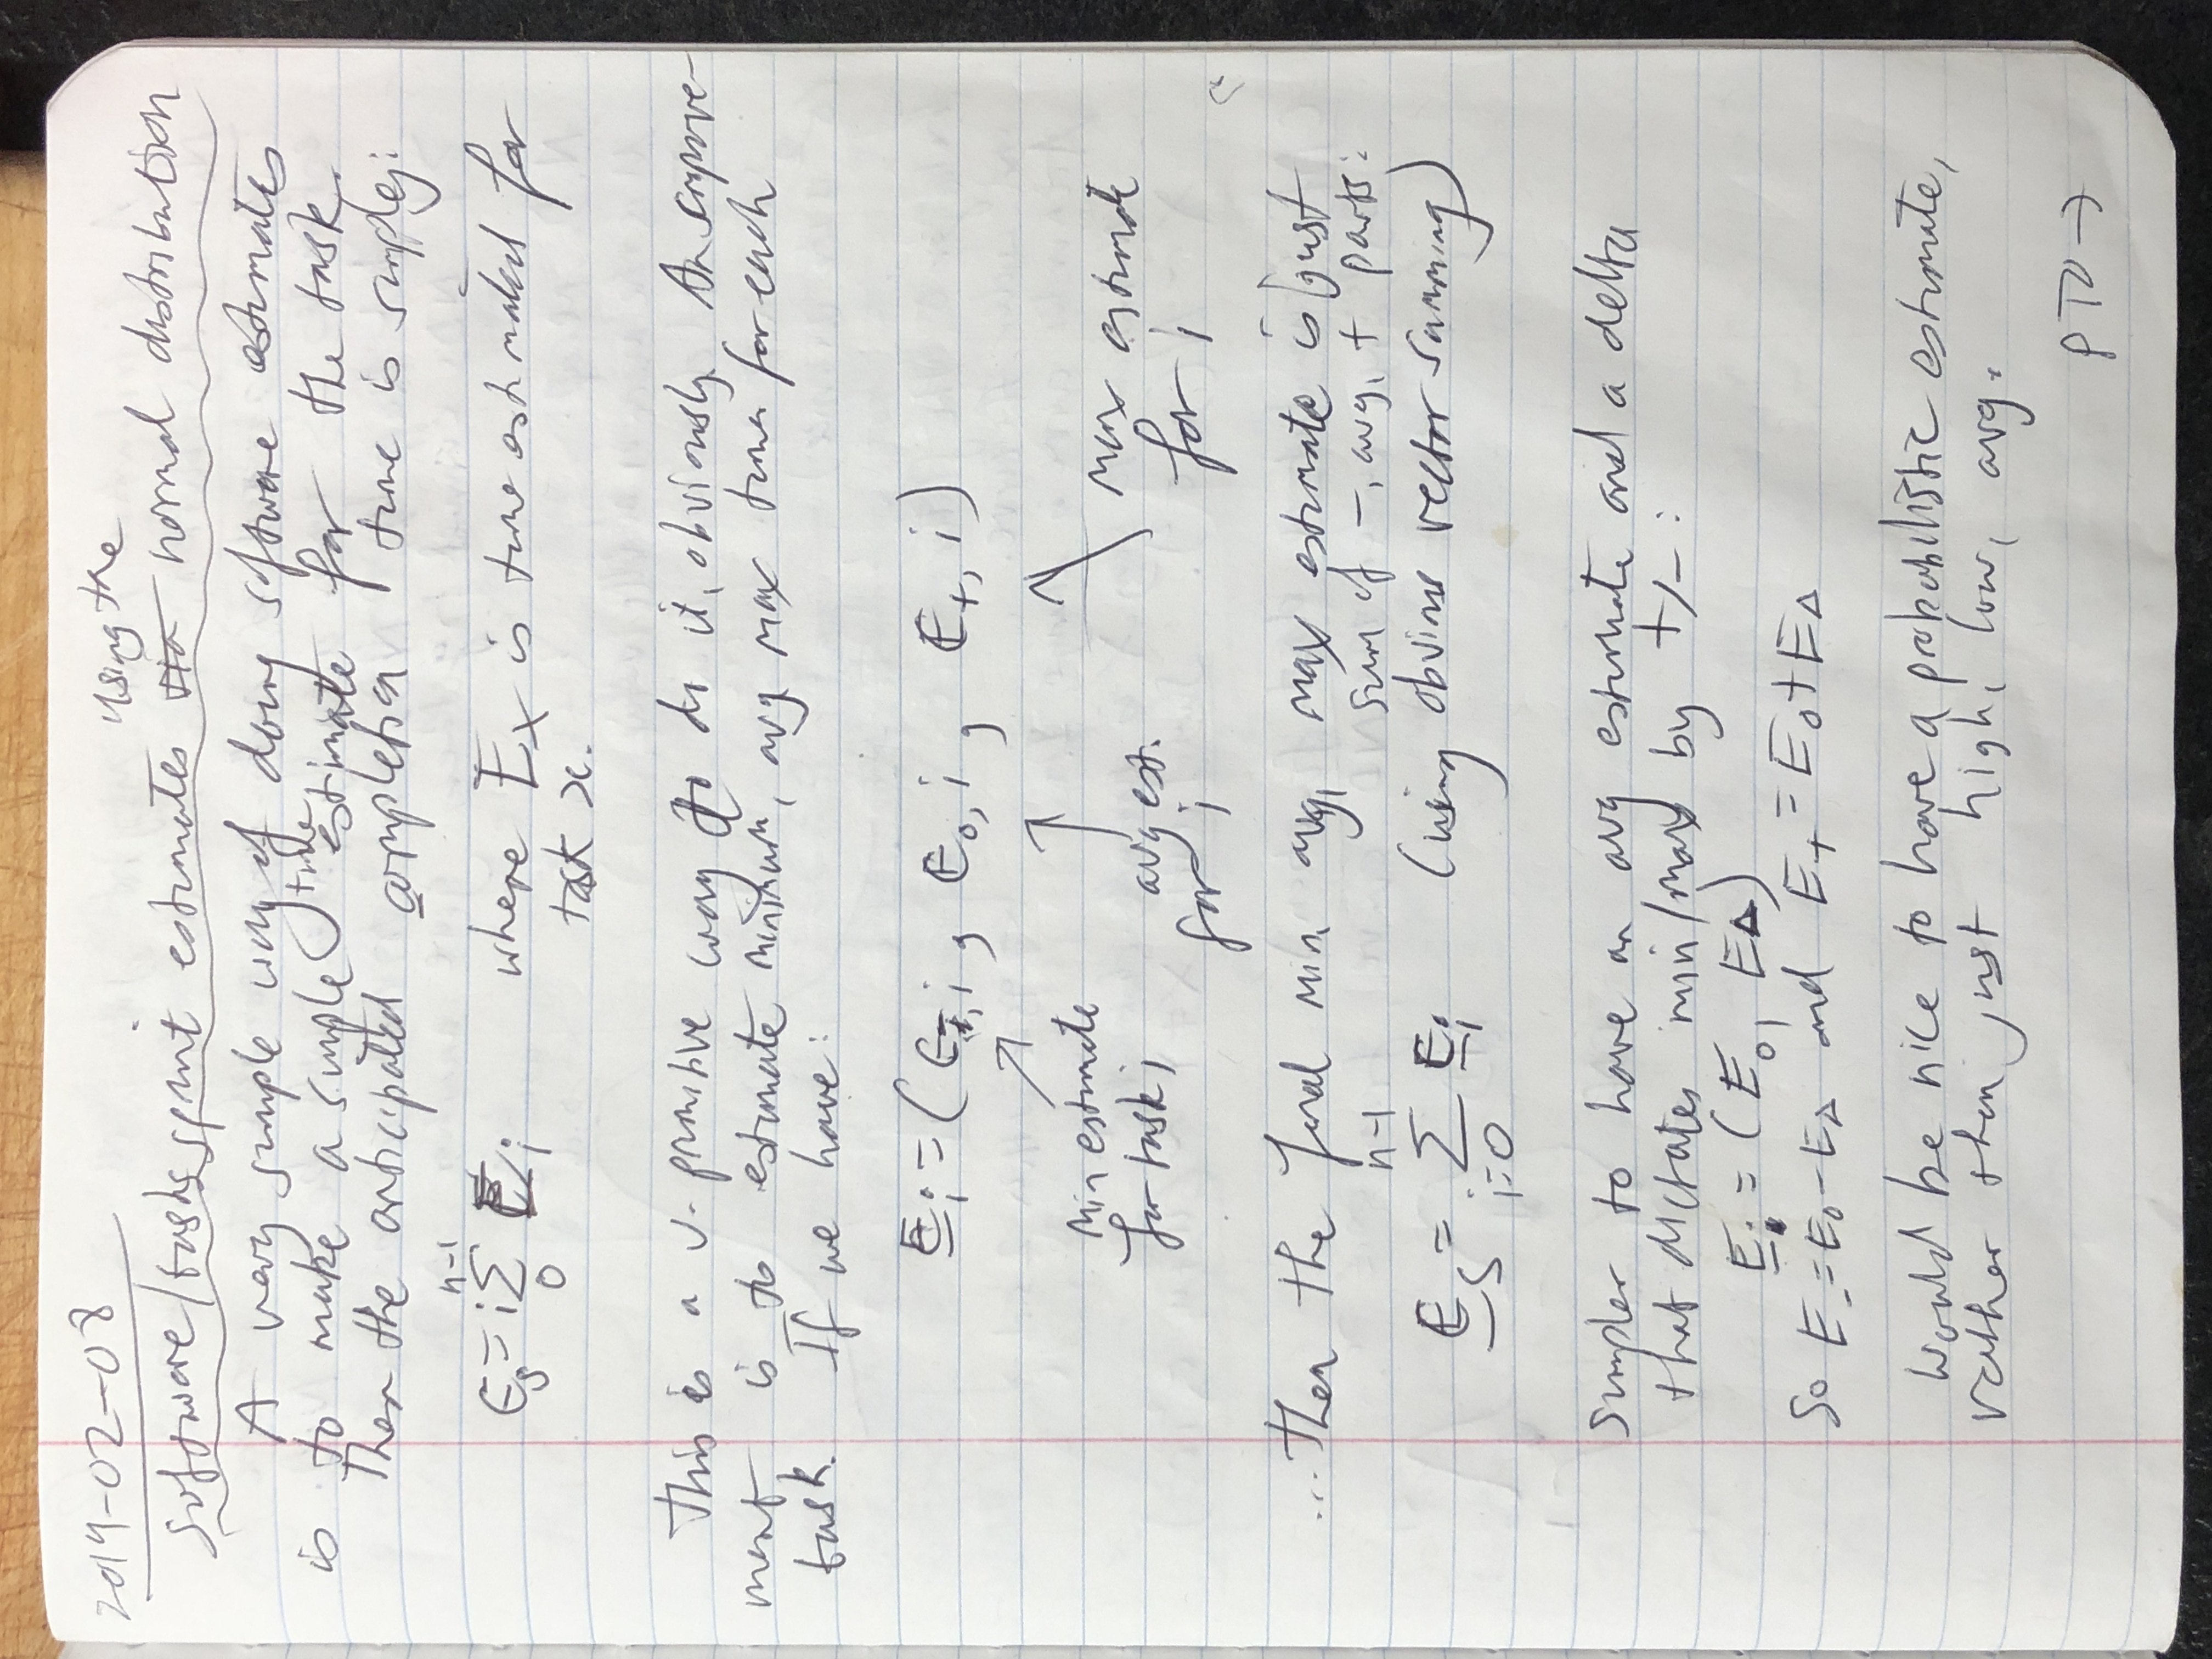 2019-02-08
using the
Software/tasks sprint estimates via normal distribution
A very simple way of doing software estimates
is to make a simple time estimate for the task.
Then the anticipated completion time is simply:
n-1
E_s = i Σ E_i where E_x is time estimated for
0 task x.
This is a v. primitive way to do it, obviously. An improve-
ment is to estimate minimum, avg max times for each
task. If we have:
E_i = (E_-,i, E_0,i, E_+,i)
Min estimate for task i
avg est. for i
max estimate for i
...then the final min, avg, max estimate is just
sum of -, avg, + parts:
n-1
E_S = Σ E_i (using obvious vector summing)
i=0
Simpler to have an avg estimate and a delta
that dictates min/max by +/-:
E_i = (E_0, E_Δ)
So E_- = E_0 - E_Δ and E_+ = E_0 + E_Δ
Would be nice to have a probabilistic estimate,
rather than just high, low, avg.
PTO →